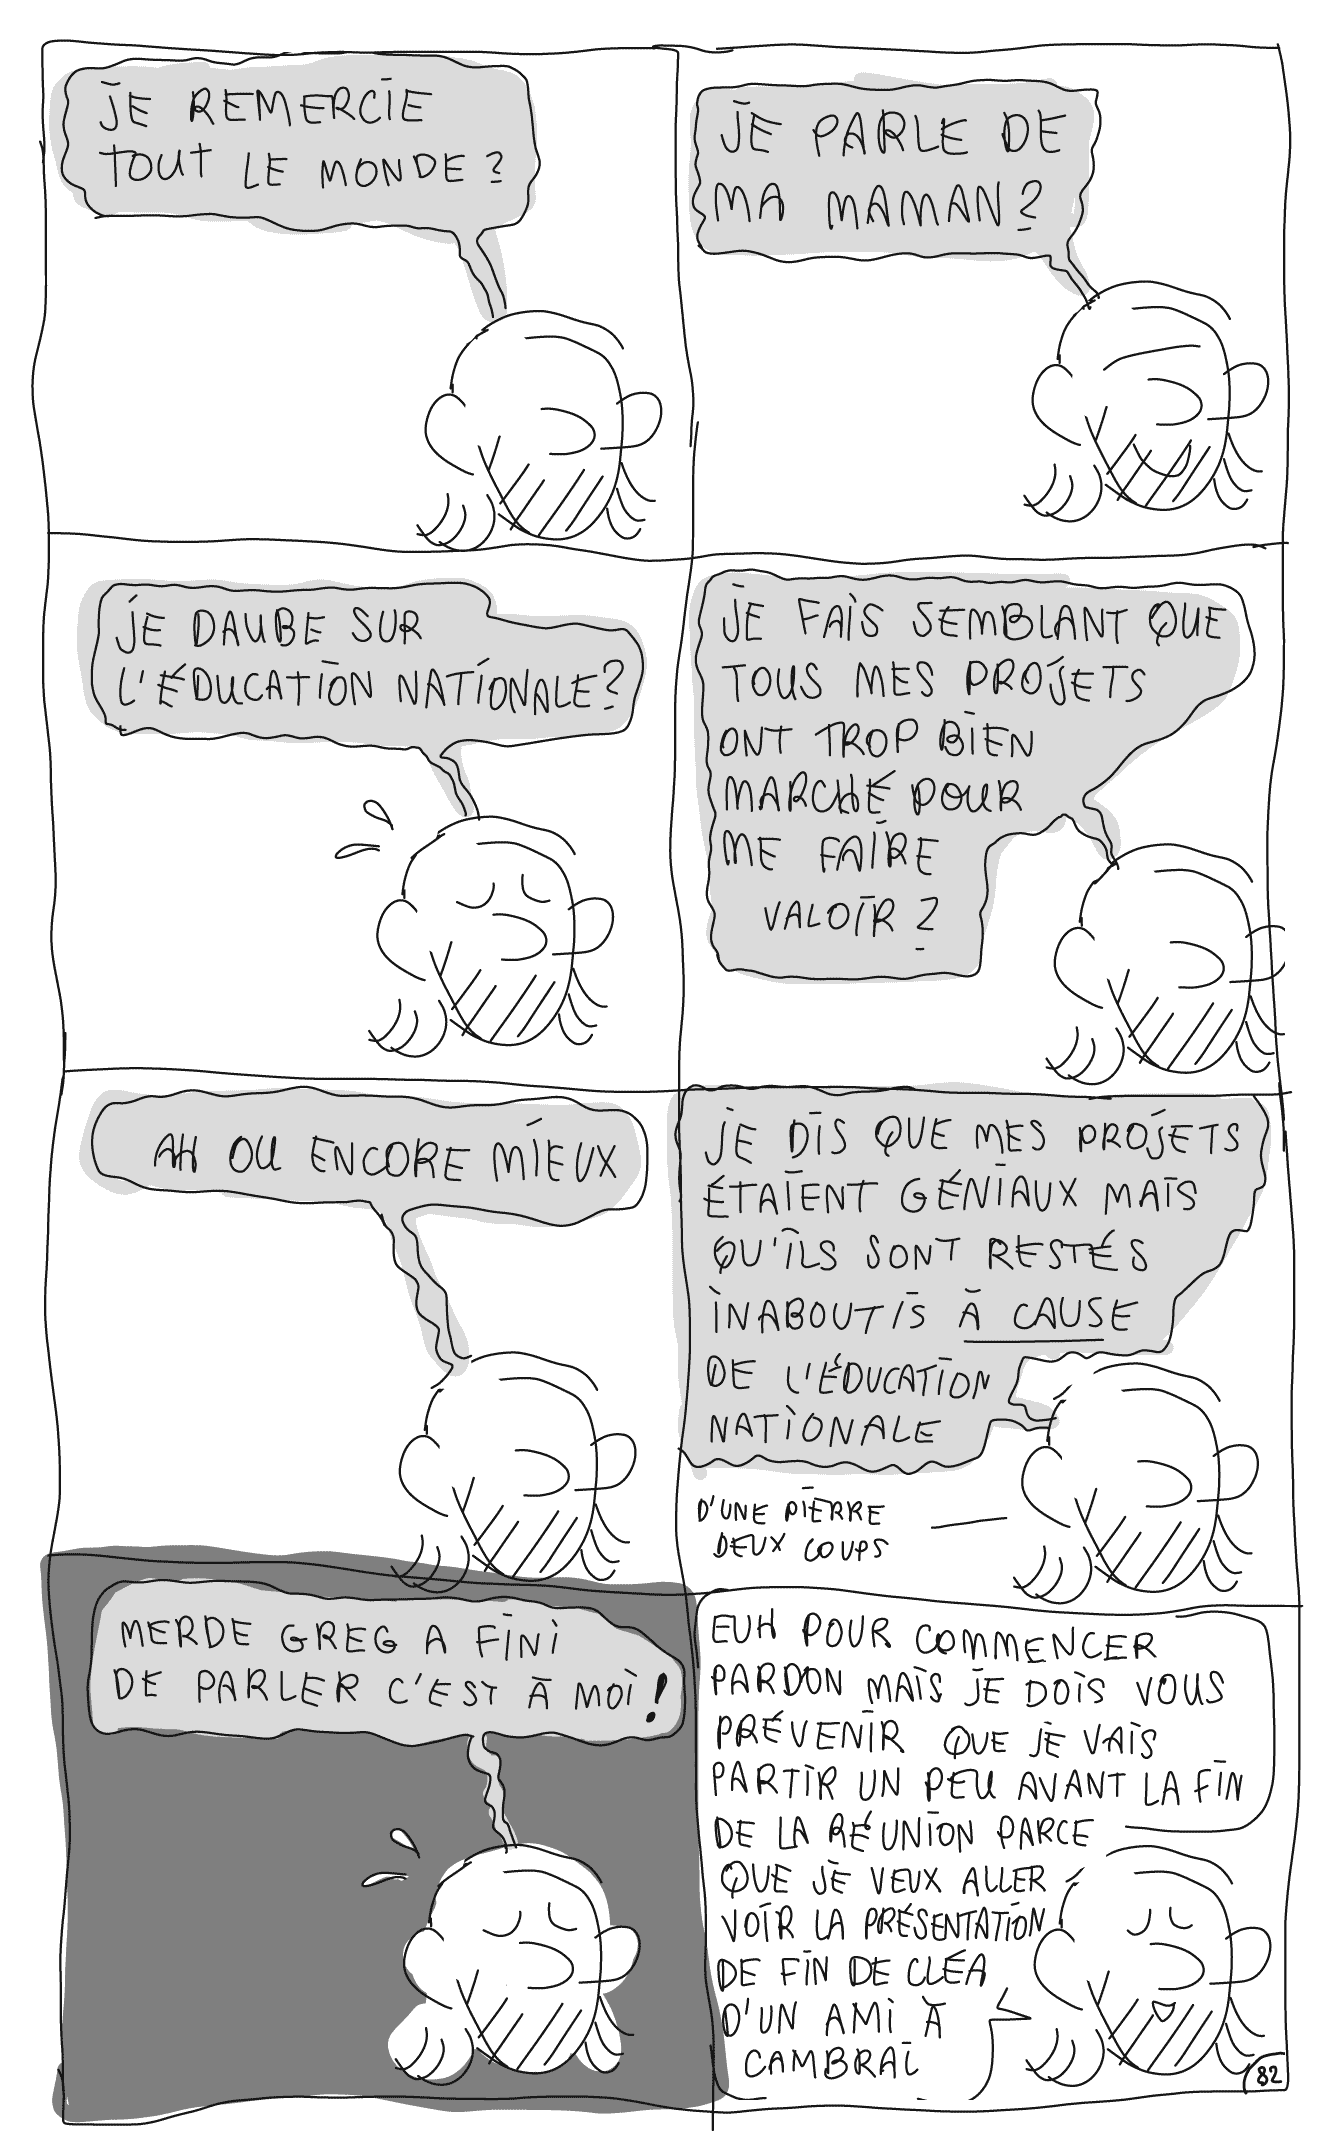 JE REMERCIE
TOUT LE MONDE ?
JE PARLE DE
MA MAMAN ?
JE DAUBE SUR
L'ÉDUCATION NATIONALE ?
JE FAIS SEMBLANT QUE
TOUS MES PROJETS
ONT TROP BIEN
MARCHÉ POUR
ME FAIRE
VALOIR ?
AH OU ENCORE MIEUX
JE DIS QUE MES PROJETS
ÉTAIENT GÉNIAUX MAIS
QU'ILS SONT RESTÉS
INABOUTIS À CAUSE
DE L'ÉDUCATION
NATIONALE
D'UNE PIERRE
DEUX COUPS
MERDE GREG A FINI
DE PARLER C'EST À MOI !
EUH POUR COMMENCER
PARDON MAIS JE DOIS VOUS
PRÉVENIR QUE JE VAIS
PARTIR UN PEU AVANT LA FIN
DE LA RÉUNION PARCE
QUE JE VEUX ALLER
VOIR LA PRÉSENTATION
DE FIN DE CLÉA
D'UN AMI À
CAMBRAI
82